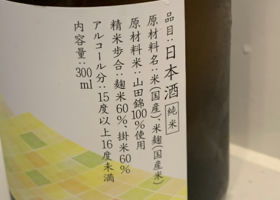 品目:日本酒 純米
原材料名:米(国産)、米麹(国産米)
原材料米:山田錦100%使用
精米歩合:麹米60%、掛米60%
アルコール分:15度以上16度未満
内容量:300ml